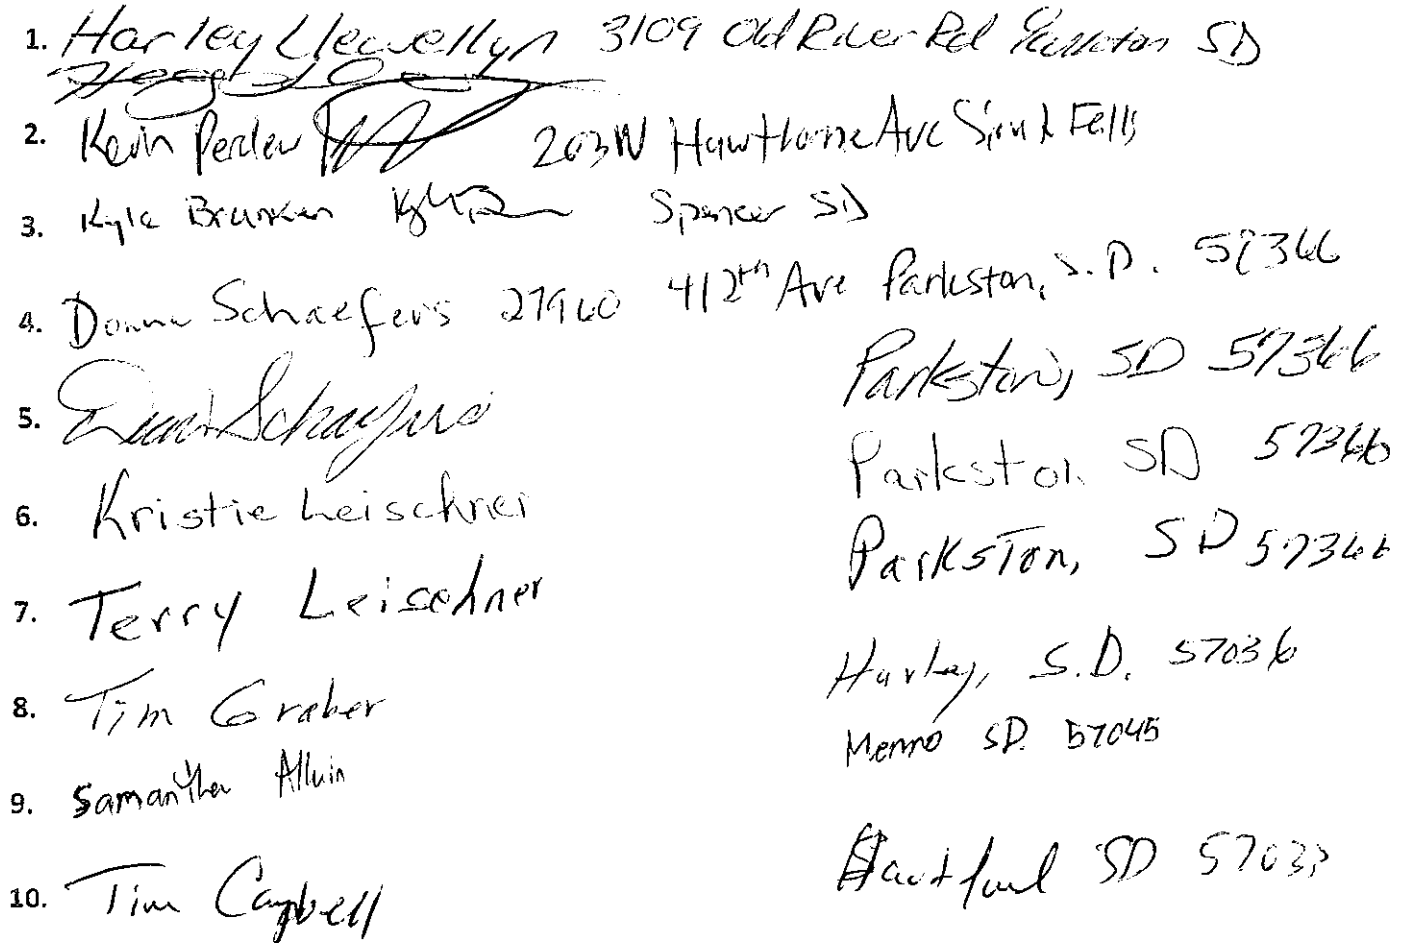 1. Harley Llewellyn 3109 Old River Rd Yankton SD
2. Kevin 203 W Hawthorne Ave Sioux Falls
3. Kyle Brunken Spencer SD
4. Donna Schaefers 27960 412th Ave Parkston, S.D. 57366
5. Schaefers Parkston, SD 57366
6. Kristie Leischner Parkston SD 57366
7. Terry Leischner Parkston, SD 57366
8. Tim Graber Hurley, S.D. 57036
9. Samantha Menno SD. 57045
10. Tim Campbell Hartford SD 57033